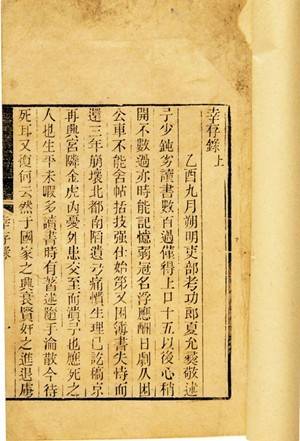 幸存錄上
乙酉九月朔明吏部考功郎夏允彝敬述
予少鈍劣讀書數百過僅得上口十五以後心稍
開不數過亦時能記憶弱冠名浮應酬日劇久困
公車不能舍帖括技强仕始第又困簿書失恃而
還三年崩壞北都南陷遺弓痛憤生理已訖鎬京
再興宮隣金虎內憂外患交至而潰予也應死之
人也生平未暇多讀書時有著述隨手淪散今待
死耳又復何云然于國家之興衰賢奸之進退虜
幸存錄